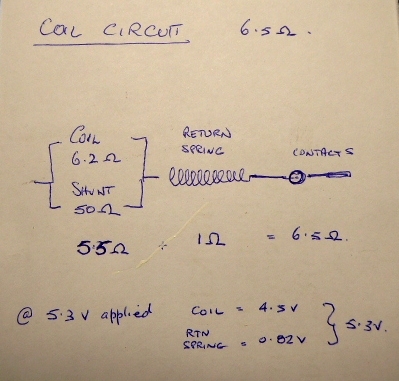 COIL CIRCUIT 6.5Ω.
COIL
6.2Ω
SHUNT
50Ω
RETURN
SPRING
CONTACTS
5.5Ω + 1Ω = 6.5Ω.
@ 5.3V applied
COIL = 4.5V
RTN
SPRING = 0.82V
5.3V.